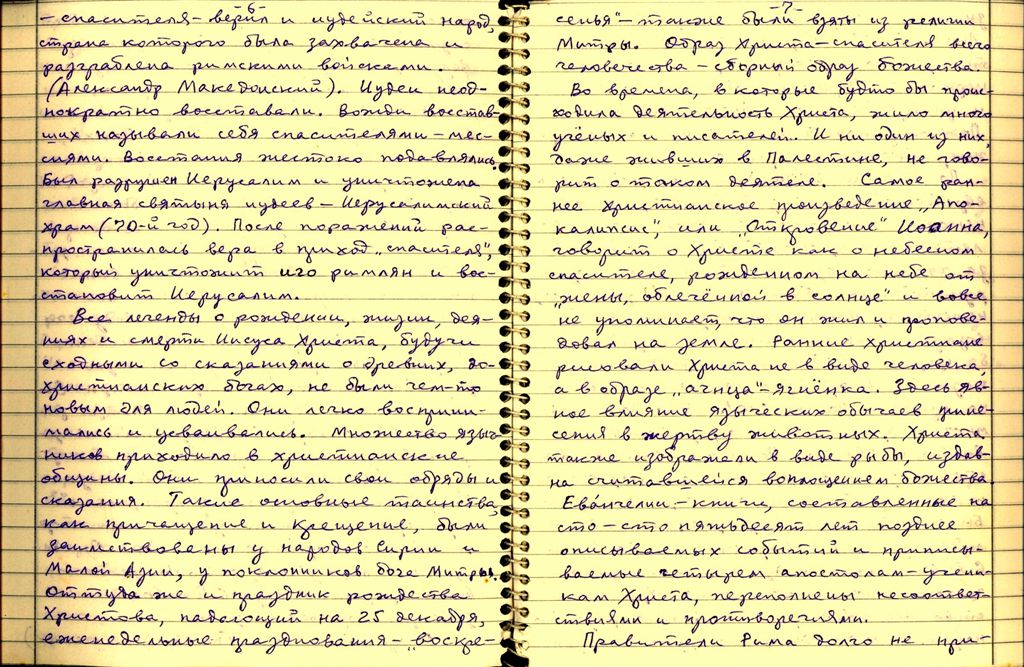 -6-
-спасителя- верил и иудейский народ,
страна которого была захвачена и
разграблена римскими войсками.
(Александр Македонский). Иудеи неод-
нократно восставали. Вожди восстав-
ших называли себя спасителями-мес-
сиями. Восстания жестоко подавлялись.
Был разрушен Иерусалим и уничтожена
главная святыня иудеев - Иерусалимский
храм (70-й год). После поражений рас-
пространилась вера в приход „спасителя",
который уничтожит иго римлян и вос-
становит Иерусалим.
Все легенды о рождении, жизни, дея-
ниях и смерти Иисуса Христа, будучи
сходными со сказаниями о древних, до-
христианских богах, не были чем-то
новым для людей. Они легко восприни-
мались и усваивались. Множество языч-
ников приходило в христианские
общины. Они приносили свои обряды и
сказания. Такие основные таинства,
как причащение и крещение, были
заимствованы у народов Сирии и
Малой Азии, у поклонников бога Митры.
Оттуда же и праздник рождества
Христова, падающий на 25 декабря,
еженедельные празднования - „воскре-
-7-
сенья" - также были взяты из религии
Митры. Образ Христа-спасителя всего
человечества - сборный образ божества.
Во времена, в которые будто бы проис-
ходила деятельность Христа, жило много
учёных и писателей. И ни один из них,
даже живших в Палестине, не гово-
рит о таком деятеле. Самое ран-
нее христианское произведение „Апо-
калипсис", или „Откровение" Иоанна,
говорит о Христе как о небесном
спасителе, рожденном на небе от
„жены, облечённой в солнце" и вовсе
не упоминает, что он жил и пропове-
довал на земле. Ранние христиане
рисовали Христа не в виде человека,
а в образе „агнца" - ягнёнка. Здесь яв-
ное влияние языческих обычаев прине-
сения в жертву животных. Христа
также изображали в виде рыбы, издав-
на считавшейся воплощением божества.
Евангелии - книги, составленные на
сто - сто пятьдесят лет позднее
описываемых событий и приписы-
ваемые четырем апостолам-учени-
кам Христа, переполнены несоответ-
ствиями и противоречиями.
Правители Рима долго не при-